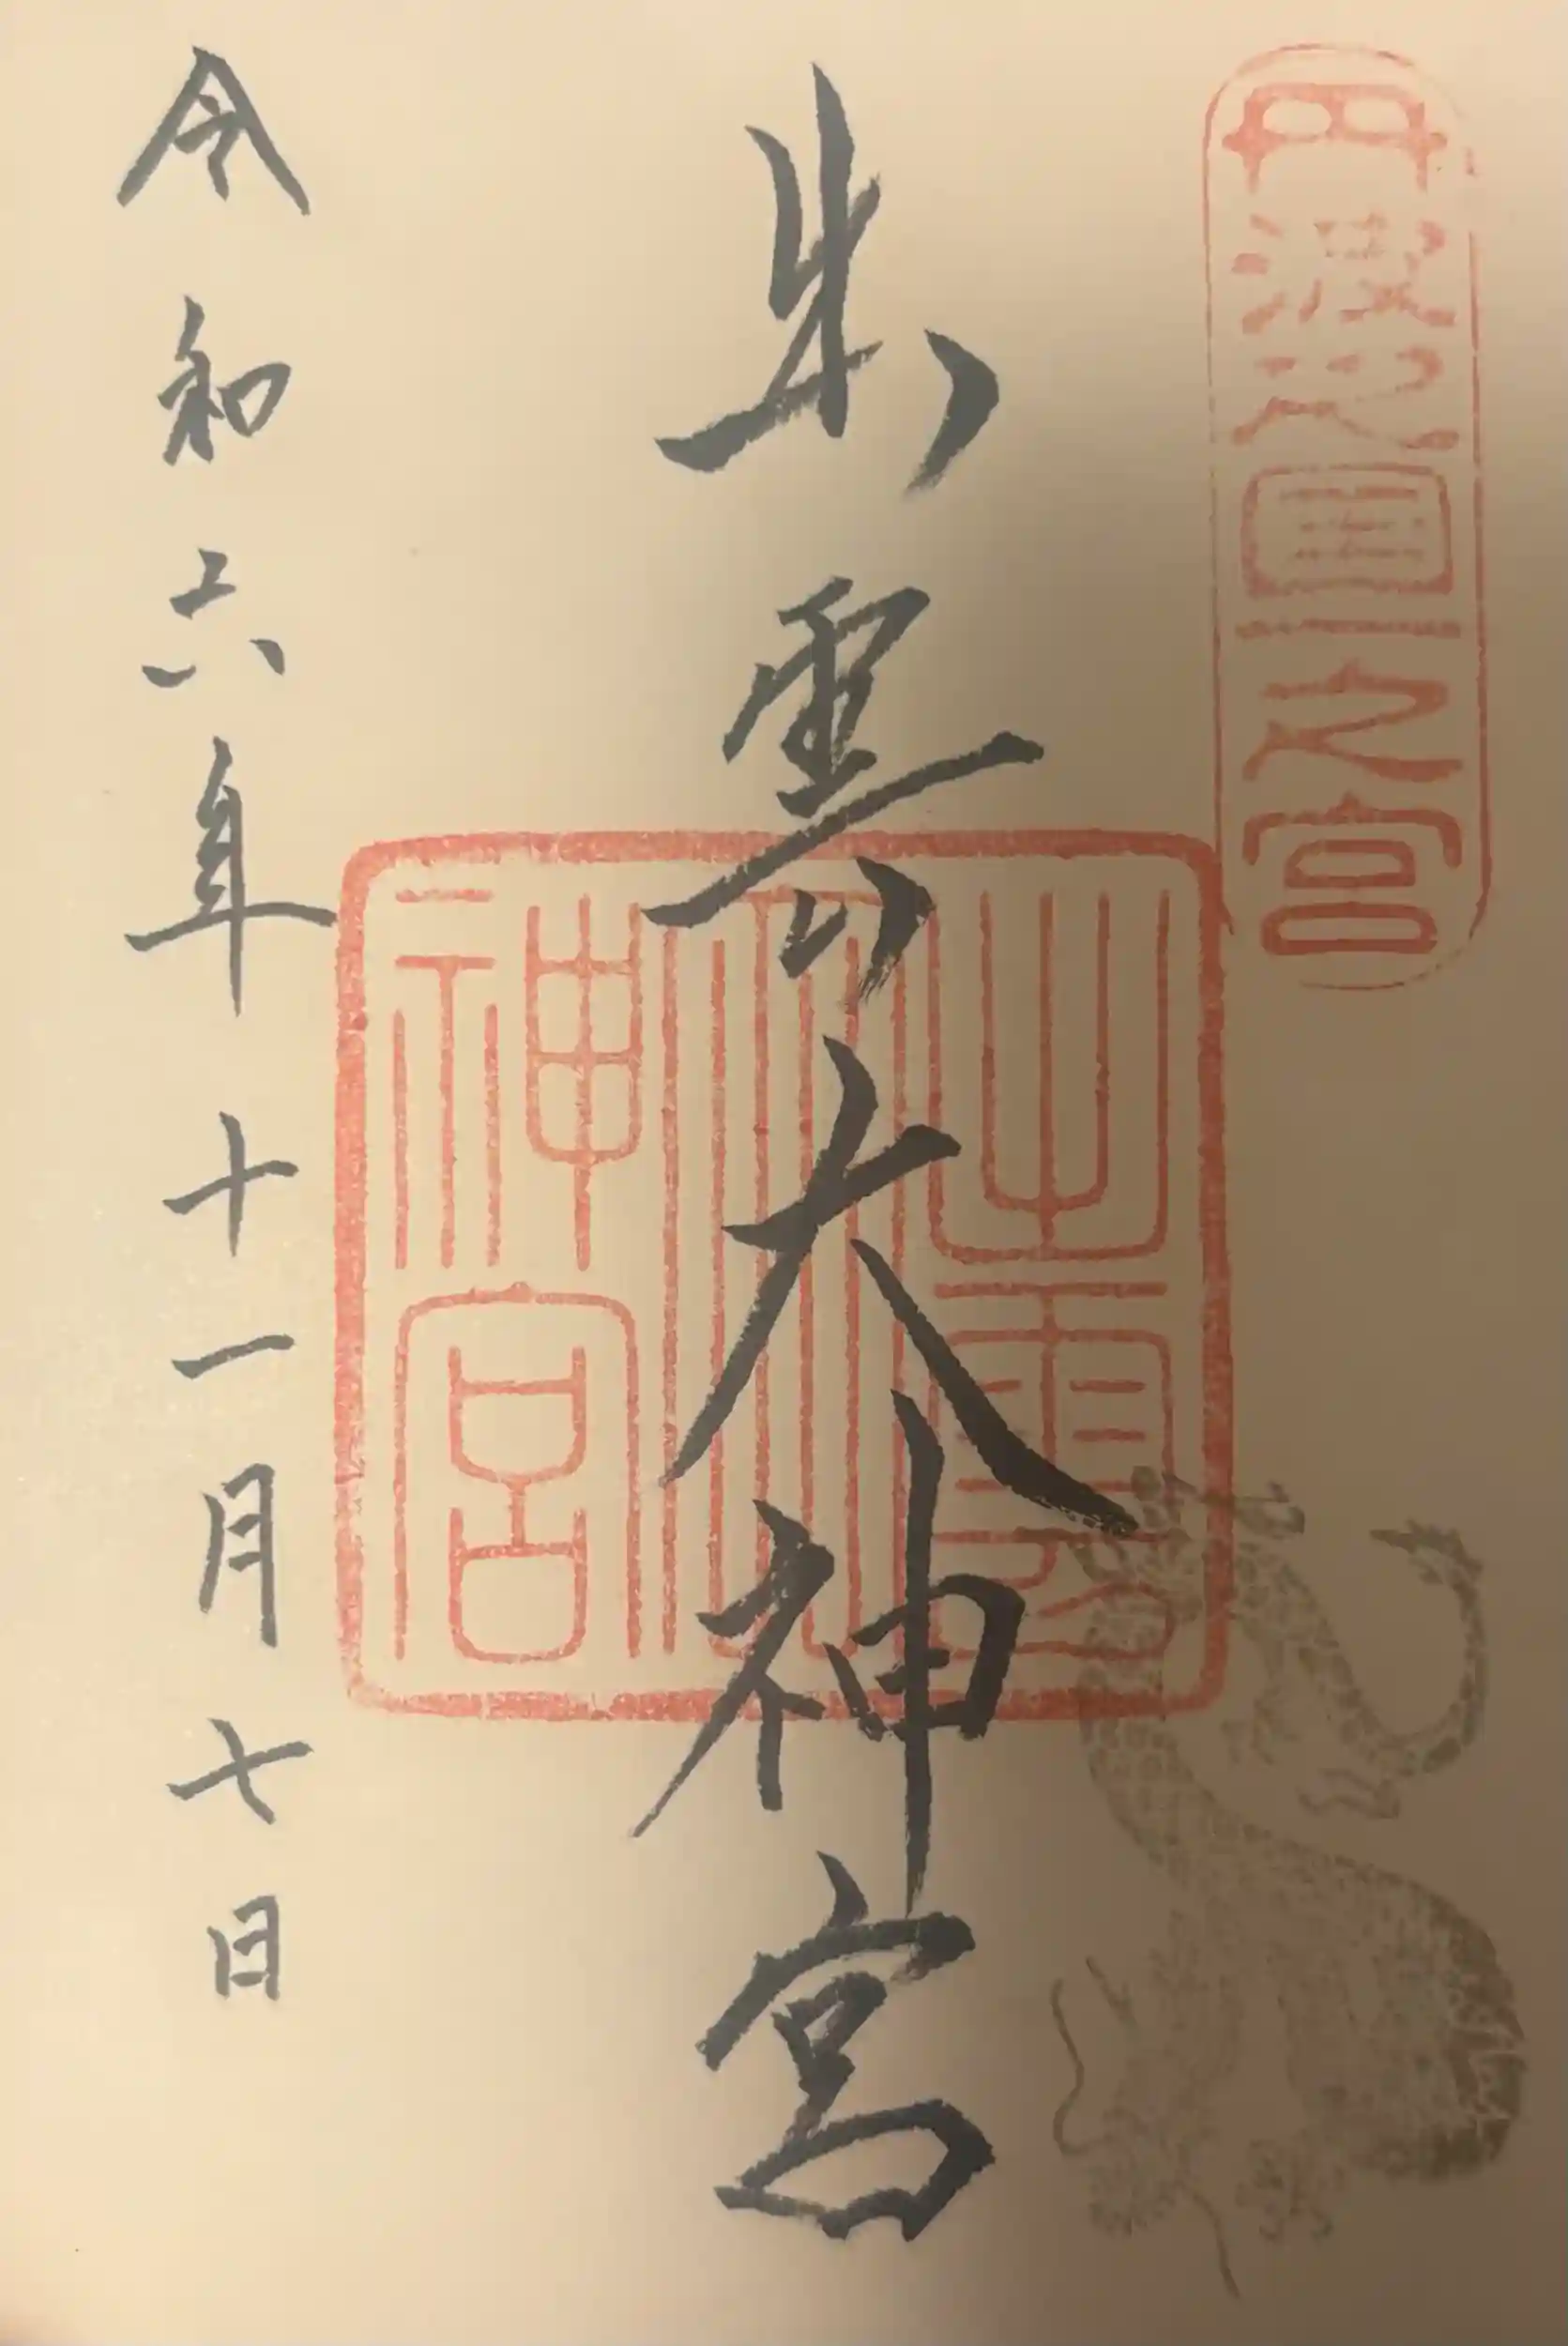 丹波之國一之宮
出雲大神宮
出雲大神宮
令和六年十一月七日